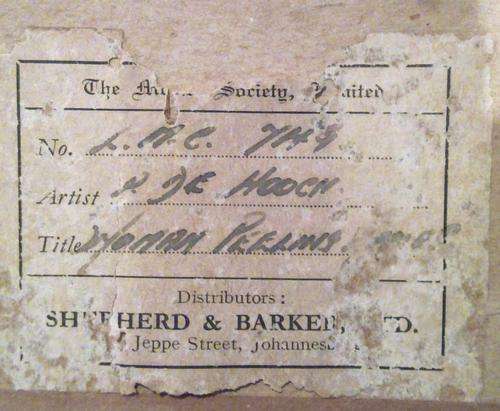 The Society,
No. L.M.C.
Artist P DE HOOCH
Title WOMAN PEELING
Distributors:
SHEPHERD & BARKER, LTD.
Jeppe Street, Johannesb